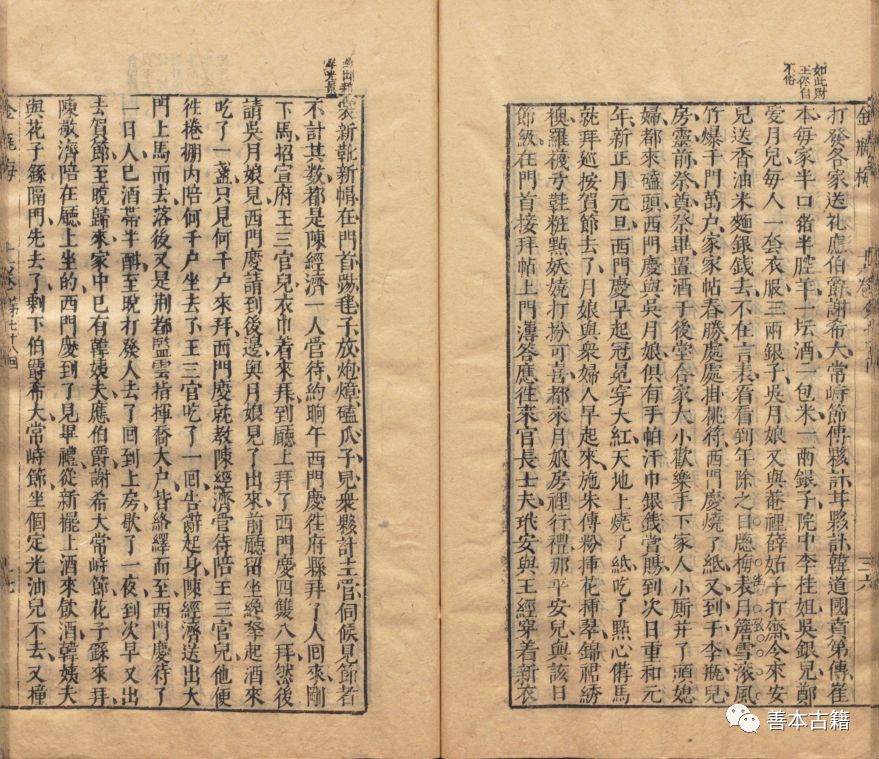 如此財
主你自
不俗
金瓶梅
打發各家送礼應伯爵謝希大常峙節傅夥計甘夥計韓道國賁第傳崔
本每家半口猪半腔羊一坛酒一包米一兩銀子院中李桂姐吳銀兒鄭
愛月兒每人一套衣服三兩銀子吳月娘又與菴裡薛姑子打齋令來安
兒送香油米麵銀錢去不在言表看看到年除之日牕梅表月簷雪滾風
竹爆千門萬户家家帖春勝處處掛桃符西門慶燒了紙又到于李瓶兒
房靈前祭奠祭畢置酒于後堂合家大小歡樂手下家人小厮并丫頭媳
婦都來磕頭西門慶與吳月娘俱有手帕汗巾銀錢賞賜到次日重和元
年新正月元旦西門慶早起冠冕穿大紅天地上燒了紙吃了點心備馬
就拜巡按賀節去了月娘與衆婦人早起來施朱傅粉插花插翠錦裙綉
襖羅襪弓鞋粧點妖嬈打扮可喜都來月娘房裡行禮那平安兒與該日
節級在門首接拜帖上門薄答應往來官長士夫玳安與王經穿着新衣
裳新靴新帽在門首踢毽子放炮燀磕瓜子兒衆夥計主管伺候見節者
不計其数都是陳經濟一人管待約晌午西門慶往府縣拜了人回來剛
下馬招宣府王三官兒衣巾着來拜到廳上拜了西門慶四雙八拜然後
請吳月娘見西門慶請到後邊與月娘見了出來前廳留坐纔拏起酒來
吃了一盞只見何千户來拜西門慶就教陳經濟管待陪王三官兒他便
徃捲棚内陪何千户坐去了王三官吃了一回告辭起身陳經濟送出大
門上馬而去落後又是荆都監雲指揮喬大户皆絡繹而至西門慶待了
一日人已酒帶半酣至晚打發人去了回到上房歇了一夜到次早又出
去賀節至晚歸來家中已有韓姨夫應伯爵謝希大常峙節花子繇來拜
陳敬濟陪在廳上坐的西門慶到了見畢禮從新擺上酒來飲酒韓姨夫
與花子繇隔門先去了剩下伯爵希大常峙節坐個定光油兒不去又撞
金瓶梅
第七十八回
善本古籍